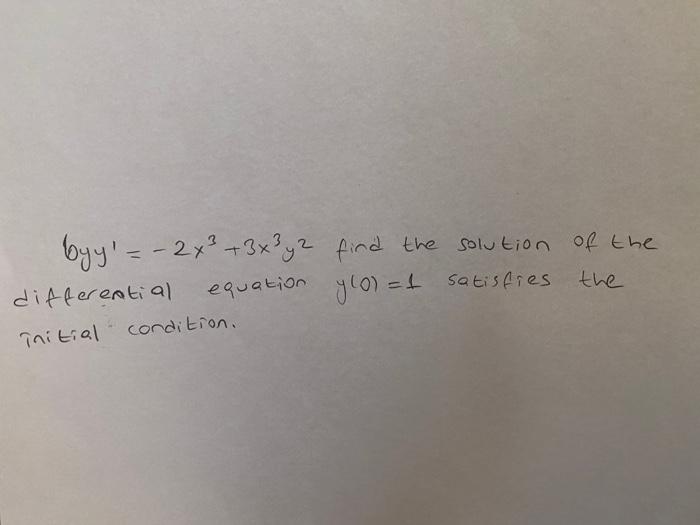 6yy' = -2x³ +3x³y² find the solution of the
differential equation y(0) = 1 satisfies the
initial condition.